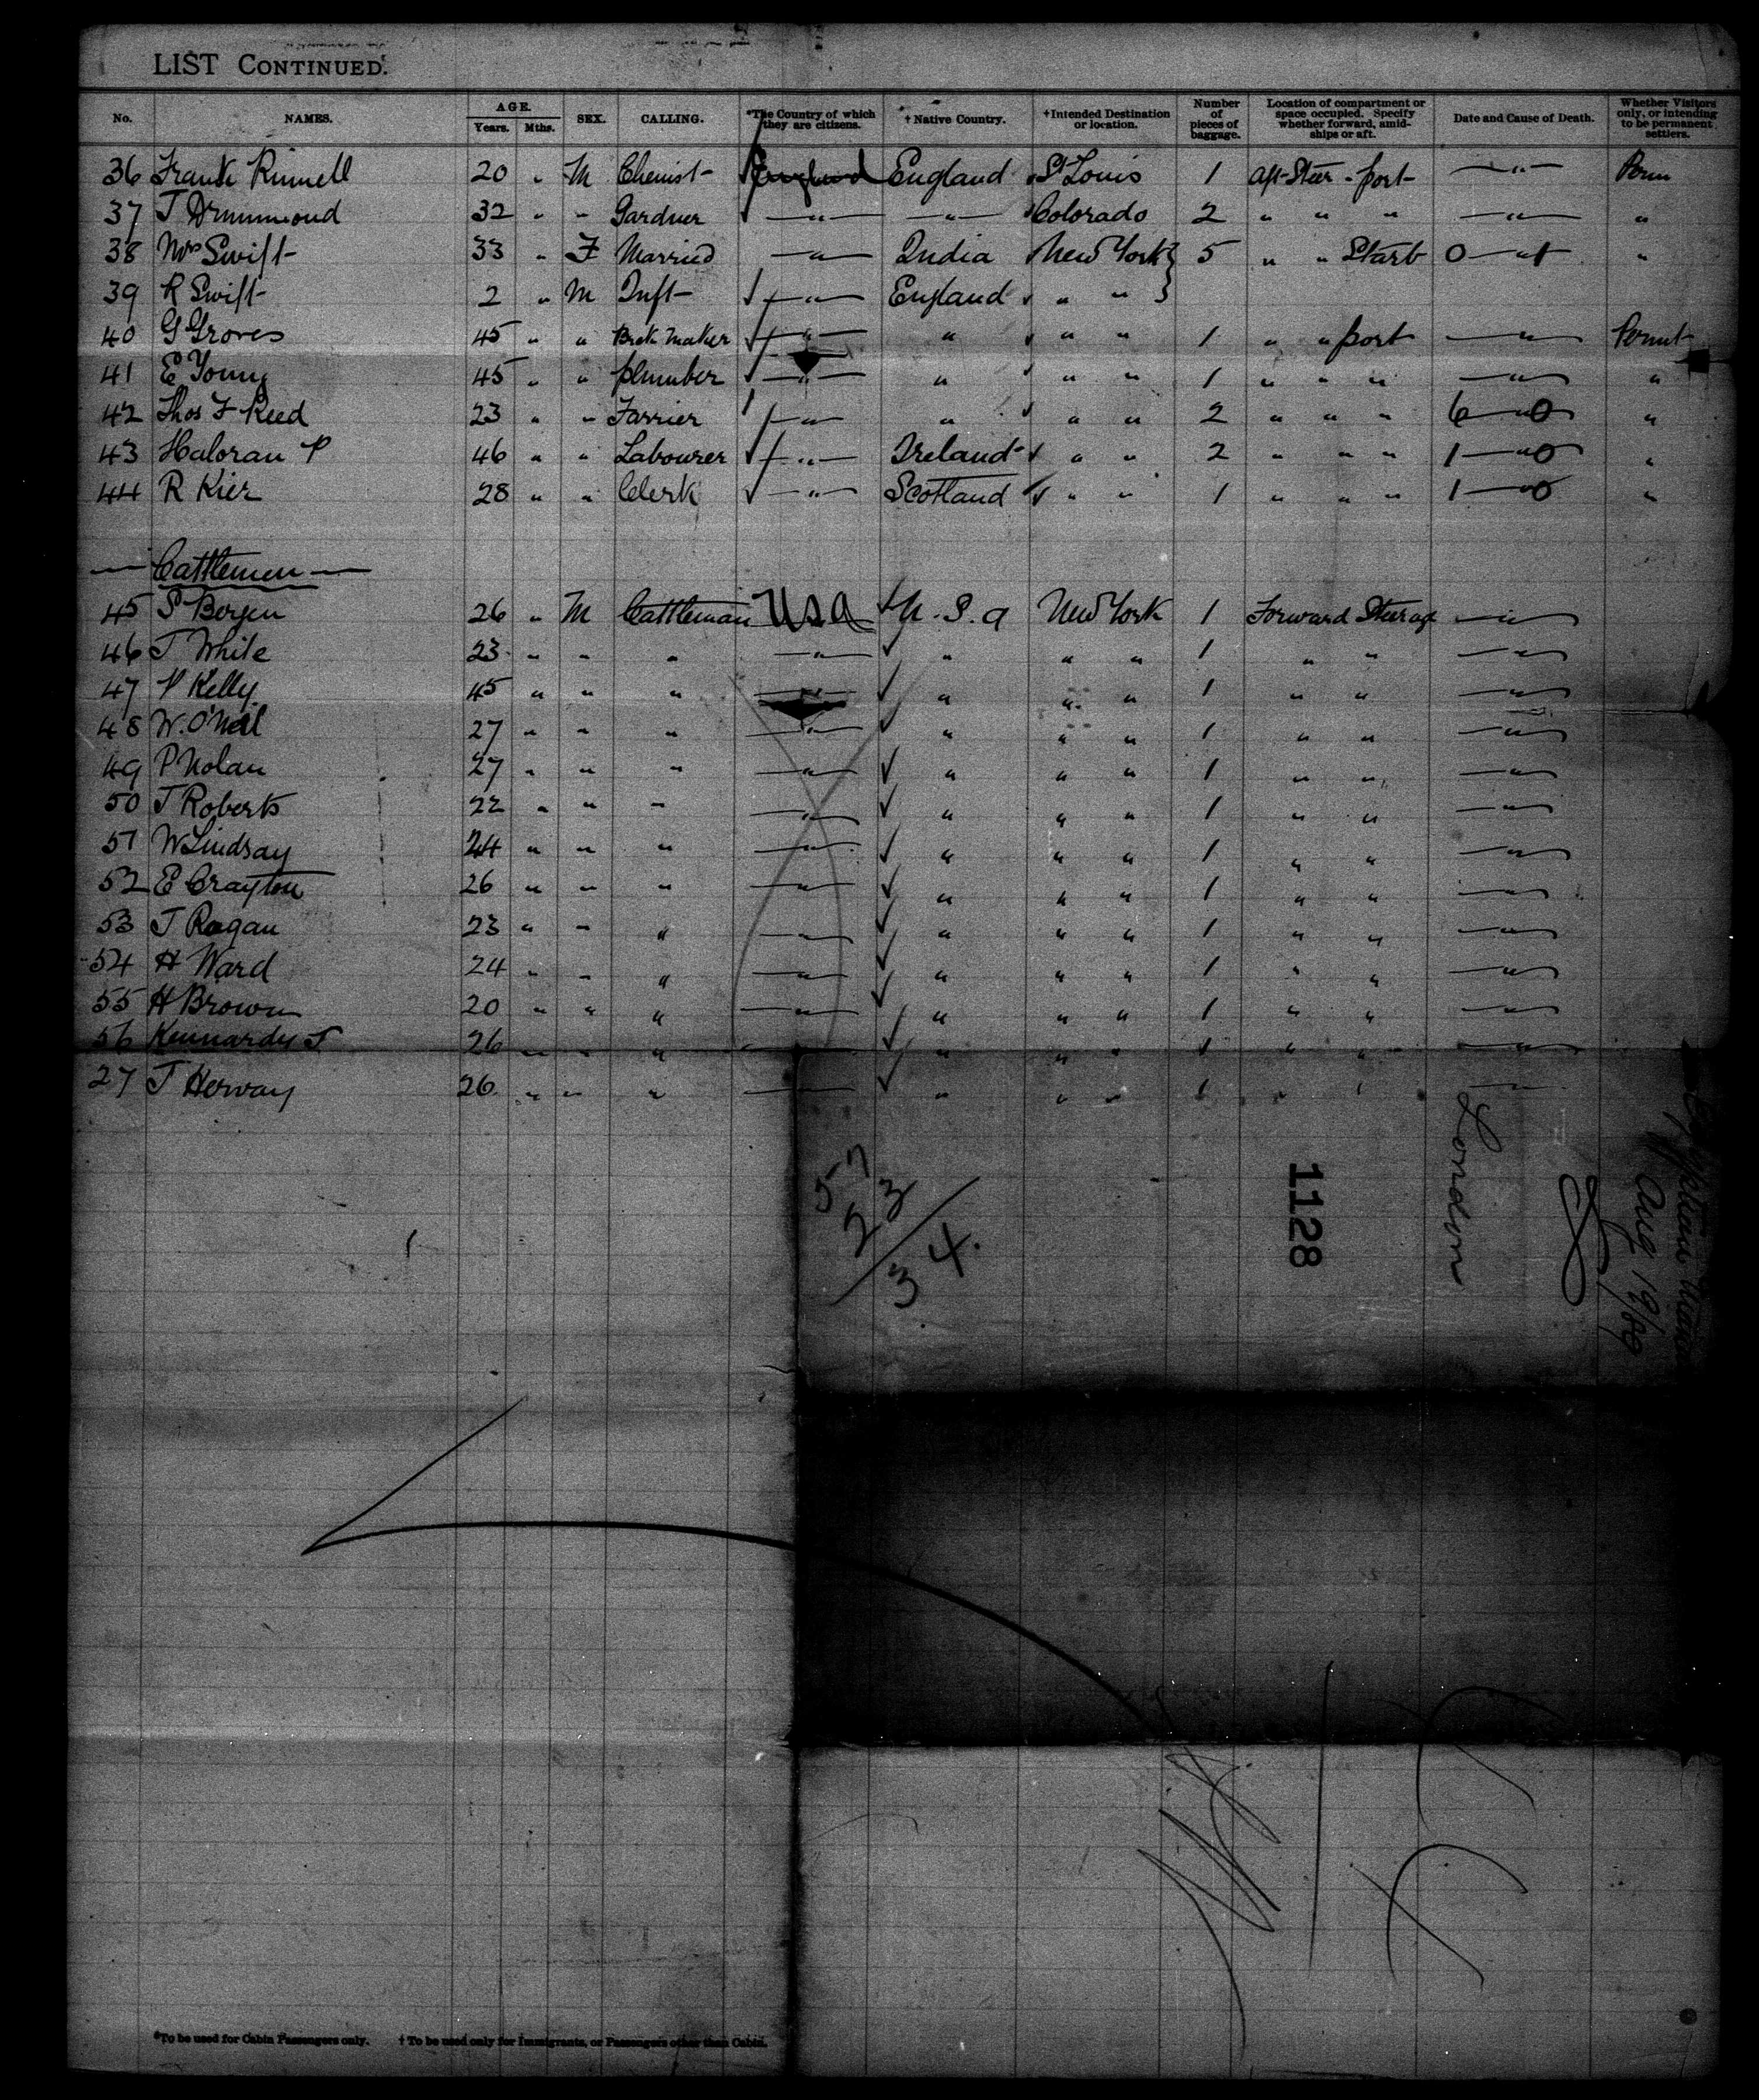 LIST CONTINUED.
No. NAMES. AGE. Years. Mths. SEX. CALLING. *The Country of which they are citizens. † Native Country. †Intended Destination or location. Number of pieces of baggage. Location of compartment or space occupied. Specify whether forward, amidships or aft. Date and Cause of Death. Whether Visitors only, or intending to be permanent settlers.
36 Frank Rinnell 20 " M Chemist England England St Louis 1 Aft Steer - port — " — Perm
37 J Drummond 32 " " Gardner — " — — " — Colorado 2 " " " — " — "
38 Mrs Swift 33 " F Married — " — India New York } 5 " " Starb 0 — " "
39 R Swift 2 " M Inft — " — England " " }
40 G Groves 45 " " Brck Maker — " — " " " 1 " " port — " — Permt
41 E Young 45 " " plumber — " — " " " 1 " " " — " — "
42 Thos F Reed 23 " " Farrier — " — " " " 2 " " " 6 — " 0 "
43 Haloran P 46 " " Labourer — " — Ireland " " 2 " " " 1 — " 0 "
44 R Kier 28 " " Clerk — " — Scotland " " 1 " " " 1 — " 0 "
— Cattlemen —
45 S Bergen 26 " M Cattleman USA U.S.a New York 1 Forward Steerag — " —
46 J White 23 " " " — " — " " " 1 " " — " —
47 P Kelly 45 " " " — " — " " " 1 " " — " —
48 W. O'Neil 27 " " " — " — " " " 1 " " — " —
49 P Nolan 27 " " " — " — " " " 1 " " — " —
50 J Roberts 22 " " " — " — " " " 1 " " — " —
51 W Lindsay 24 " " " — " — " " " 1 " " — " —
52 E Crayton 26 " " " — " — " " " 1 " " — " —
53 J Ragan 23 " " " — " — " " " 1 " " — " —
54 H Ward 24 " " " — " — " " " 1 " " — " —
55 H Brown 20 " " " — " — " " " 1 " " — " —
56 Kennardy J 26 " " " — " — " " " 1 " " — " —
27 J Hervay 26 " " " — " — " " " 1 " " — " —
57
23
34.
1128
London
Egyptian
Aug 19/89
*To be used for Cabin Passengers only. † To be used only for Immigrants, or Passengers other than Cabin.